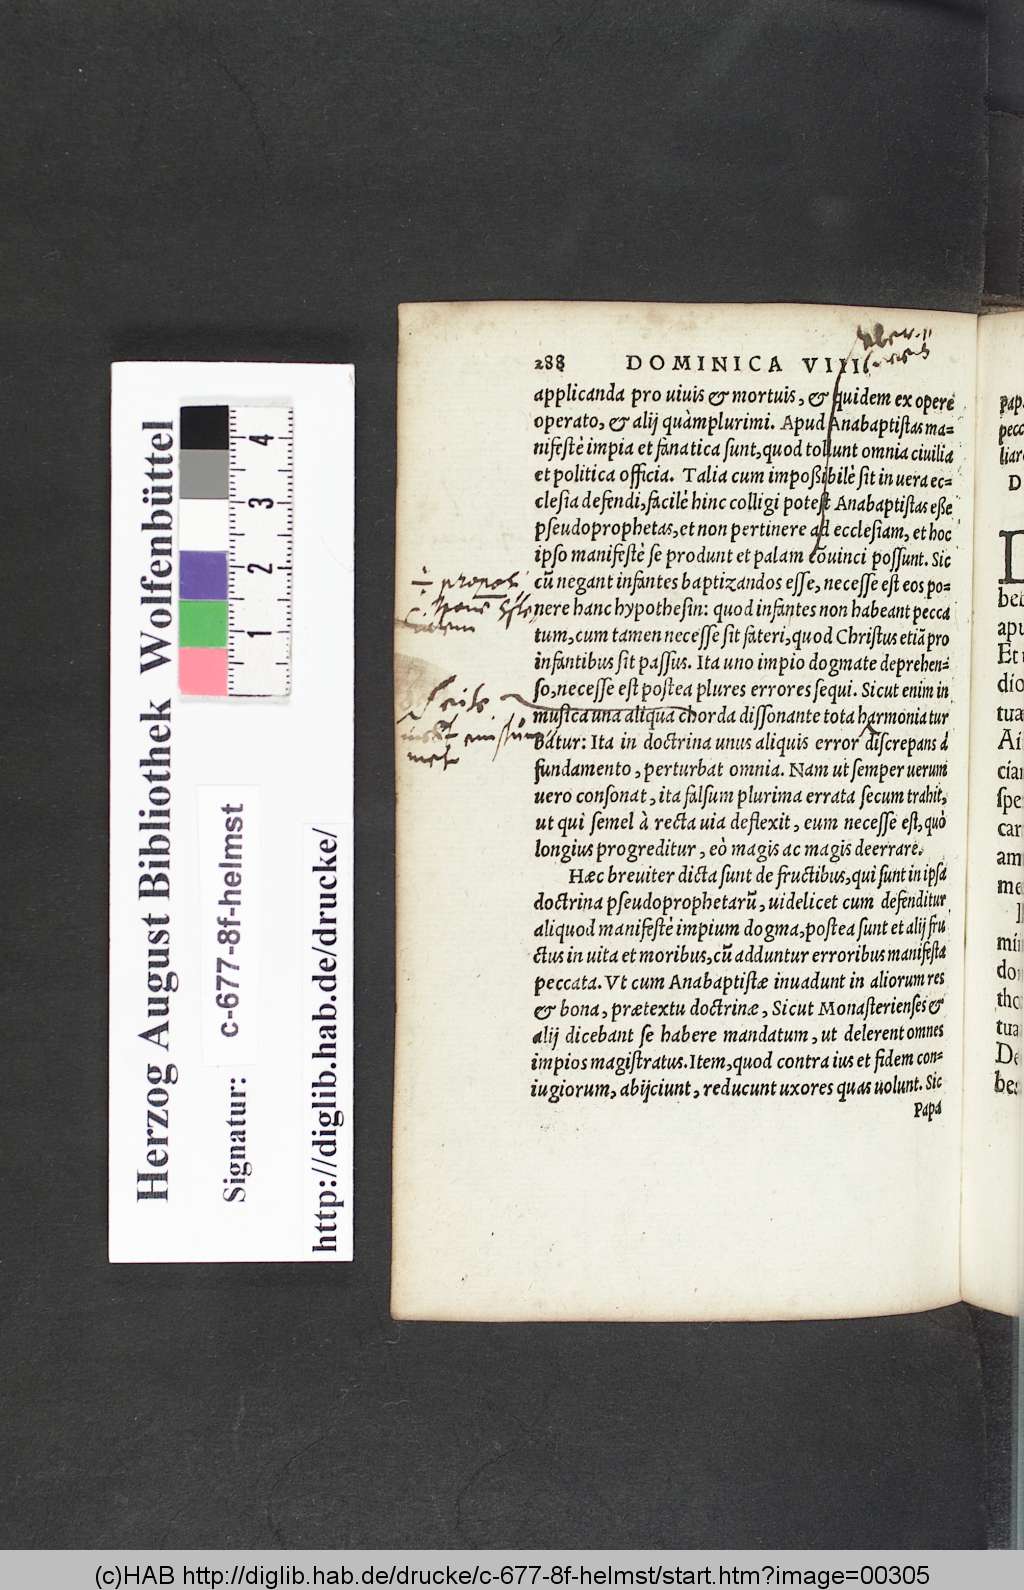 288 DOMINICA VIII.
applicanda pro uiuis & mortuis, & quidem ex opere
operato, & alij quàmplurimi. Apud Anabaptistas ma-
nifestè impia et fanatica sunt, quod tollunt omnia ciuilia
et politica officia. Talia cum impoßibilè sit in uera ec-
clesia defendi, facilè hinc colligi potest Anabaptistas eße
pseudoprophetas, et non pertinere ad ecclesiam, et hoc
ipso manifestè se produnt et palam cõuinci possunt. Sic
cũ negant infantes baptizandos esse, necesse est eos po-
nere hanc hypothesin: quod infantes non habeant pecca
tum, cum tamen necesse sit fateri, quod Christus etiã pro
infantibus sit passus. Ita uno impio dogmate deprehen-
so, necesse est postea plures errores sequi. Sicut enim in
musica una aliqua chorda dissonante tota harmonia tur
batur: Ita in doctrina unus aliquis error discrepans à
fundamento, perturbat omnia. Nam ut semper uerum
uero consonat, ita falsum plurima errata secum trahit,
ut qui semel à recta uia deflexit, eum necesse est, quò
longius progreditur, eò magis ac magis deerrare.
Hæc breuiter dicta sunt de fructibus, qui sunt in ipsa
doctrina pseudoprophetarũ, uidelicet cum defenditur
aliquod manifestè impium dogma, postea sunt et alij fru
ctus in uita et moribus, cũ adduntur erroribus manifesta
peccata. Vt cum Anabaptistæ inuadunt in aliorum res
& bona, prætextu doctrinæ, Sicut Monasterienses &
alij dicebant se habere mandatum, ut delerent omnes
impios magistratus. Item, quod contra ius et fidem con-
iugiorum, abijciunt, reducunt uxores quas uolunt. Sic
Papa
Herzog August Bibliothek Wolfenbüttel
Signatur: c-677-8f-helmst
http://diglib.hab.de/drucke/
1 2 3 4
(c)HAB http://diglib.hab.de/drucke/c-677-8f-helmst/start.htm?image=00305